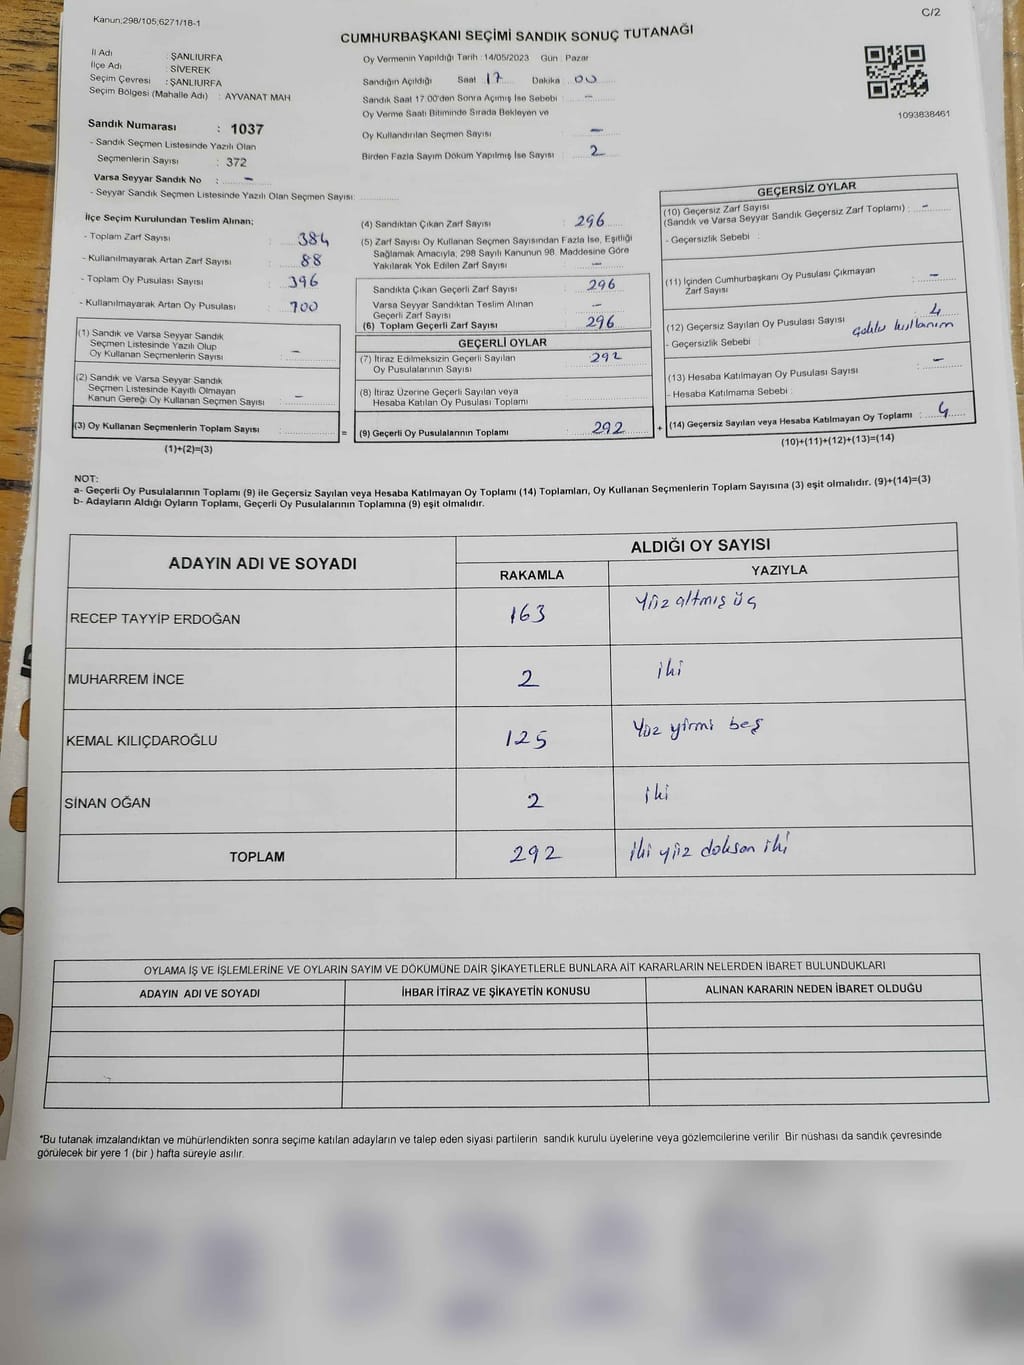 Kanun;298/105,6271/18-1
C/2
CUMHURBAŞKANI SEÇİMİ SANDIK SONUÇ TUTANAĞI
İl Adı : ŞANLIURFA
İlçe Adı : SİVEREK
Seçim Çevresi : ŞANLIURFA
Seçim Bölgesi (Mahalle Adı) : AYVANAT MAH
Sandık Numarası : 1037
- Sandık Seçmen Listesinde Yazılı Olan
Seçmenlerin Sayısı : 372
Varsa Seyyar Sandık No : -
- Seyyar Sandık Seçmen Listesinde Yazılı Olan Seçmen Sayısı:
Oy Vermenin Yapıldığı Tarih : 14/05/2023 Gün : Pazar
Sandığın Açıldığı Saat 17 Dakika 00
Sandık Saat 17.00'den Sonra Açımış İse Sebebi : -
Oy Verme Saati Bitiminde Sırada Bekleyen ve
Oy Kullandırılan Seçmen Sayısı : -
Birden Fazla Sayım Döküm Yapılmış İse Sayısı : 2
1093838461
İlçe Seçim Kurulundan Teslim Alınan;
- Toplam Zarf Sayısı : 384
- Kullanılmayarak Artan Zarf Sayısı : 88
- Toplam Oy Pusulası Sayısı : 396
- Kullanılmayarak Artan Oy Pusulası : 100
(1) Sandık ve Varsa Seyyar Sandık
Seçmen Listesinde Yazılı Olup
Oy Kullanan Seçmenlerin Sayısı : -
(2) Sandık ve Varsa Seyyar Sandık
Seçmen Listesinde Kayıtlı Olmayan
Kanun Gereği Oy Kullanan Seçmen Sayısı : -
(3) Oy Kullanan Seçmenlerin Toplam Sayısı :
(1)+(2)=(3)
(4) Sandıktan Çıkan Zarf Sayısı : 296
(5) Zarf Sayısı Oy Kullanan Seçmen Sayısından Fazla İse, Eşitliği
Sağlamak Amacıyla; 298 Sayılı Kanunun 98. Maddesine Göre
Yakılarak Yok Edilen Zarf Sayısı : -
Sandıkta Çıkan Geçerli Zarf Sayısı : 296
Varsa Seyyar Sandıktan Teslim Alınan
Geçerli Zarf Sayısı : -
(6) Toplam Geçerli Zarf Sayısı : 296
GEÇERLİ OYLAR
(7) İtiraz Edilmeksizin Geçerli Sayılan
Oy Pusulalarının Sayısı : 292
(8) İtiraz Üzerine Geçerli Sayılan veya
Hesaba Katılan Oy Pusulası Toplamı :
= (9) Geçerli Oy Pusulalarının Toplamı : 292
GEÇERSİZ OYLAR
(10) Geçersiz Zarf Sayısı
(Sandık ve Varsa Seyyar Sandık Geçersiz Zarf Toplamı) : -
- Geçersizlik Sebebi :
(11) İçinden Cumhurbaşkanı Oy Pusulası Çıkmayan
Zarf Sayısı : -
(12) Geçersiz Sayılan Oy Pusulası Sayısı : 4
- Geçersizlik Sebebi : kullanım
(13) Hesaba Katılmayan Oy Pusulası Sayısı : -
- Hesaba Katılmama Sebebi :
+ (14) Geçersiz Sayılan veya Hesaba Katılmayan Oy Toplamı : 4
(10)+(11)+(12)+(13)=(14)
NOT:
a- Geçerli Oy Pusulalarının Toplamı (9) ile Geçersiz Sayılan veya Hesaba Katılmayan Oy Toplamı (14) Toplamları, Oy Kullanan Seçmenlerin Toplam Sayısına (3) eşit olmalıdır. (9)+(14)=(3)
b- Adayların Aldığı Oyların Toplamı, Geçerli Oy Pusulalarının Toplamına (9) eşit olmalıdır.
ADAYIN ADI VE SOYADI
ALDIĞI OY SAYISI
RAKAMLA YAZIYLA
RECEP TAYYİP ERDOĞAN 163 Yüz altmış üç
MUHARREM İNCE 2 iki
KEMAL KILIÇDAROĞLU 125 Yüz yirmi beş
SİNAN OĞAN 2 iki
TOPLAM 292 iki yüz doksan iki
OYLAMA İŞ VE İŞLEMLERİNE VE OYLARIN SAYIM VE DÖKÜMÜNE DAİR ŞİKAYETLERLE BUNLARA AİT KARARLARIN NELERDEN İBARET BULUNDUKLARI
ADAYIN ADI VE SOYADI İHBAR İTİRAZ VE ŞİKAYETİN KONUSU ALINAN KARARIN NEDEN İBARET OLDUĞU
*Bu tutanak imzalandıktan ve mühürlendikten sonra seçime katılan adayların ve talep eden siyasi partilerin sandık kurulu üyelerine veya gözlemcilerine verilir Bir nüshası da sandık çevresinde
görülecek bir yere 1 (bir ) hafta süreyle asılır.